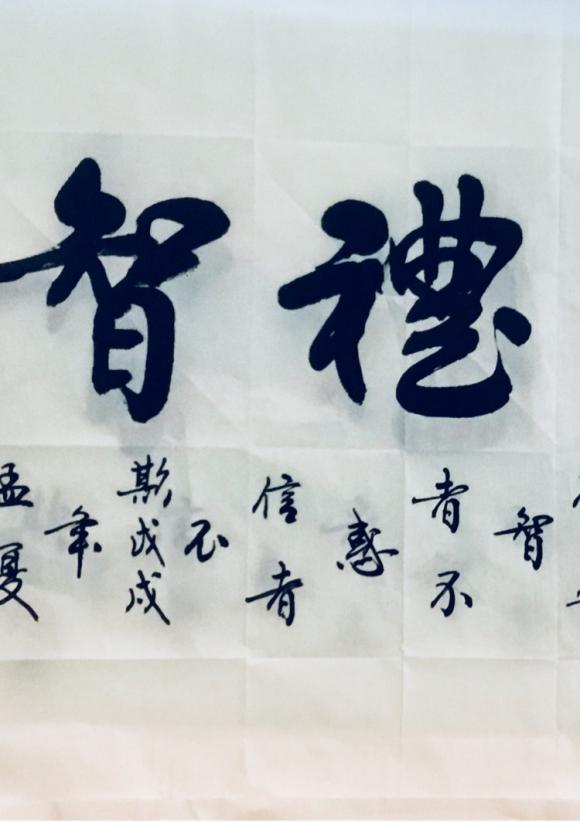 禮智
智
者不
惑
信者
不
欺戊戌
年
孟夏